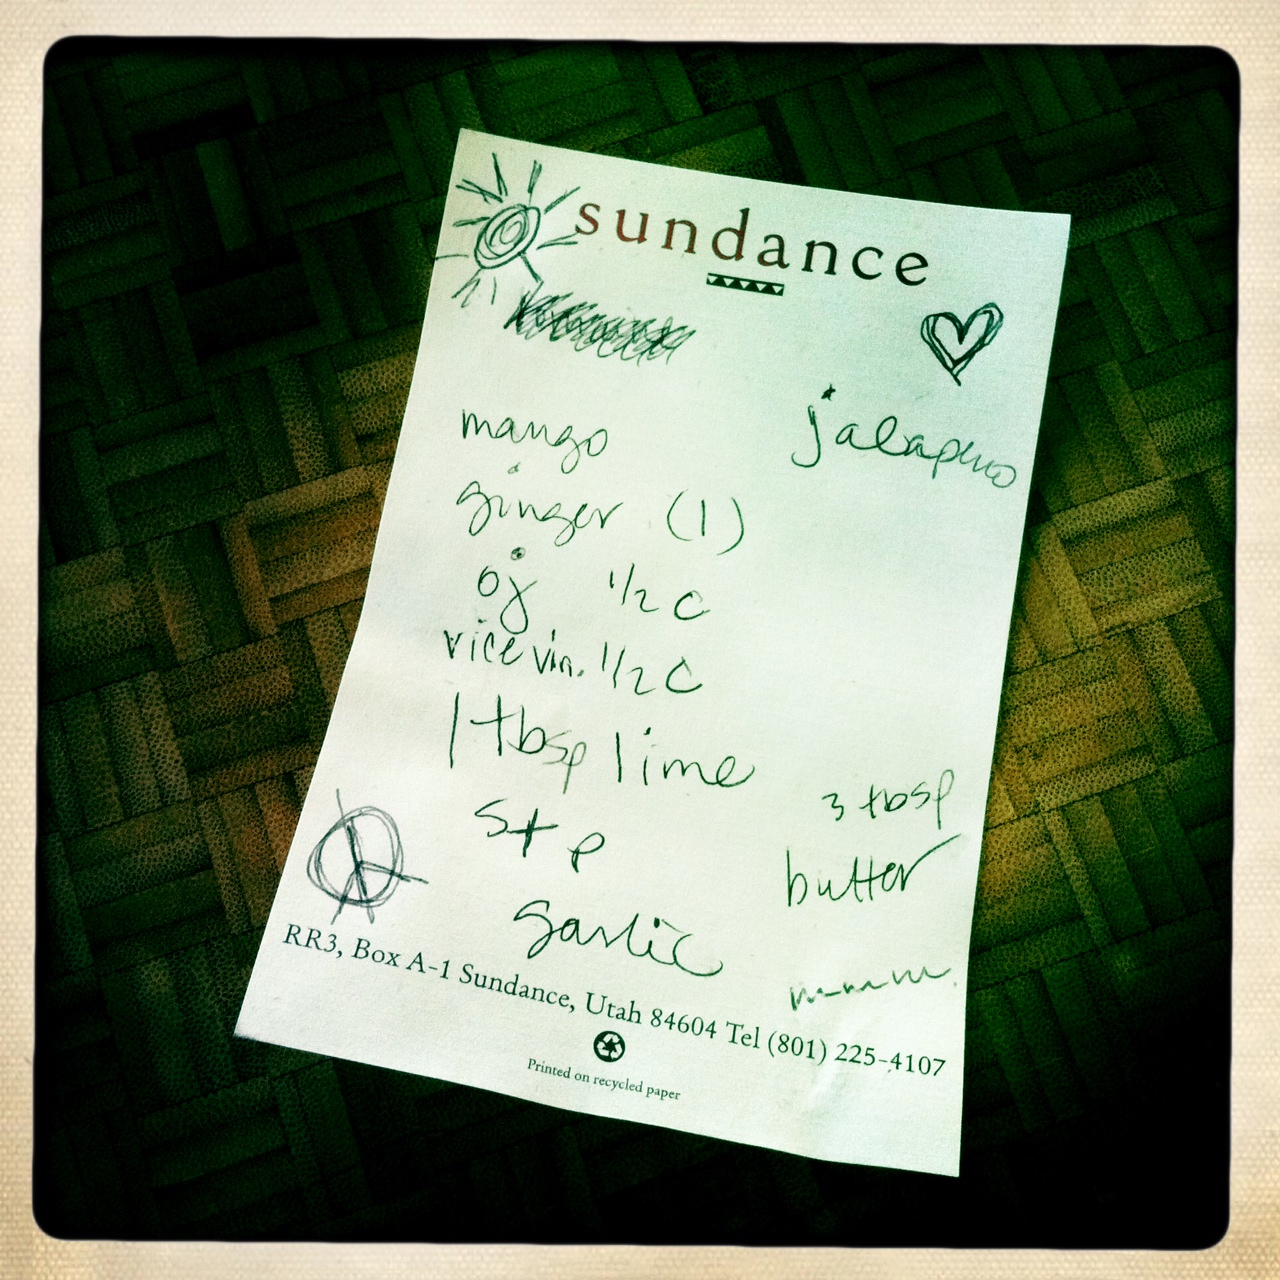 sundance
mango
jalapeno
ginger (1)
oj 1/2 c
rice vin. 1/2 c
1 tbsp lime
3 tbsp
s + p
butter
garlic
mmm.
RR3, Box A-1 Sundance, Utah 84604 Tel (801) 225-4107
Printed on recycled paper